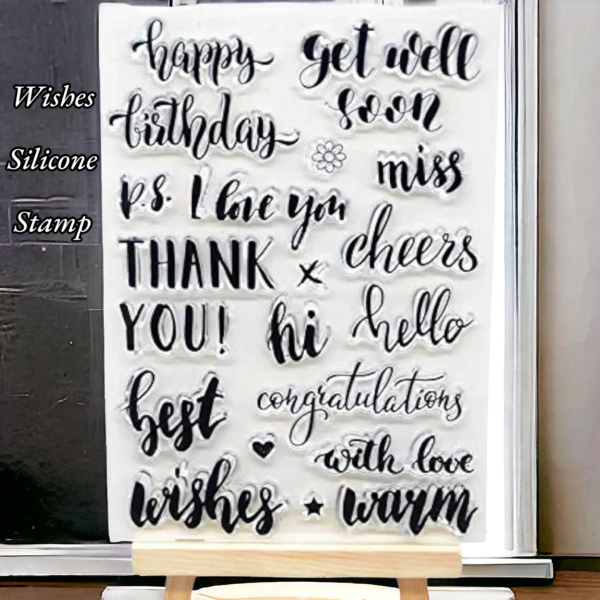 Wishes
Silicone
Stamp
happy
birthday
get well
soon
miss
p.s. I love you
THANK x
YOU!
cheers
hi
hello
best
wishes
congratulations
with love
warm